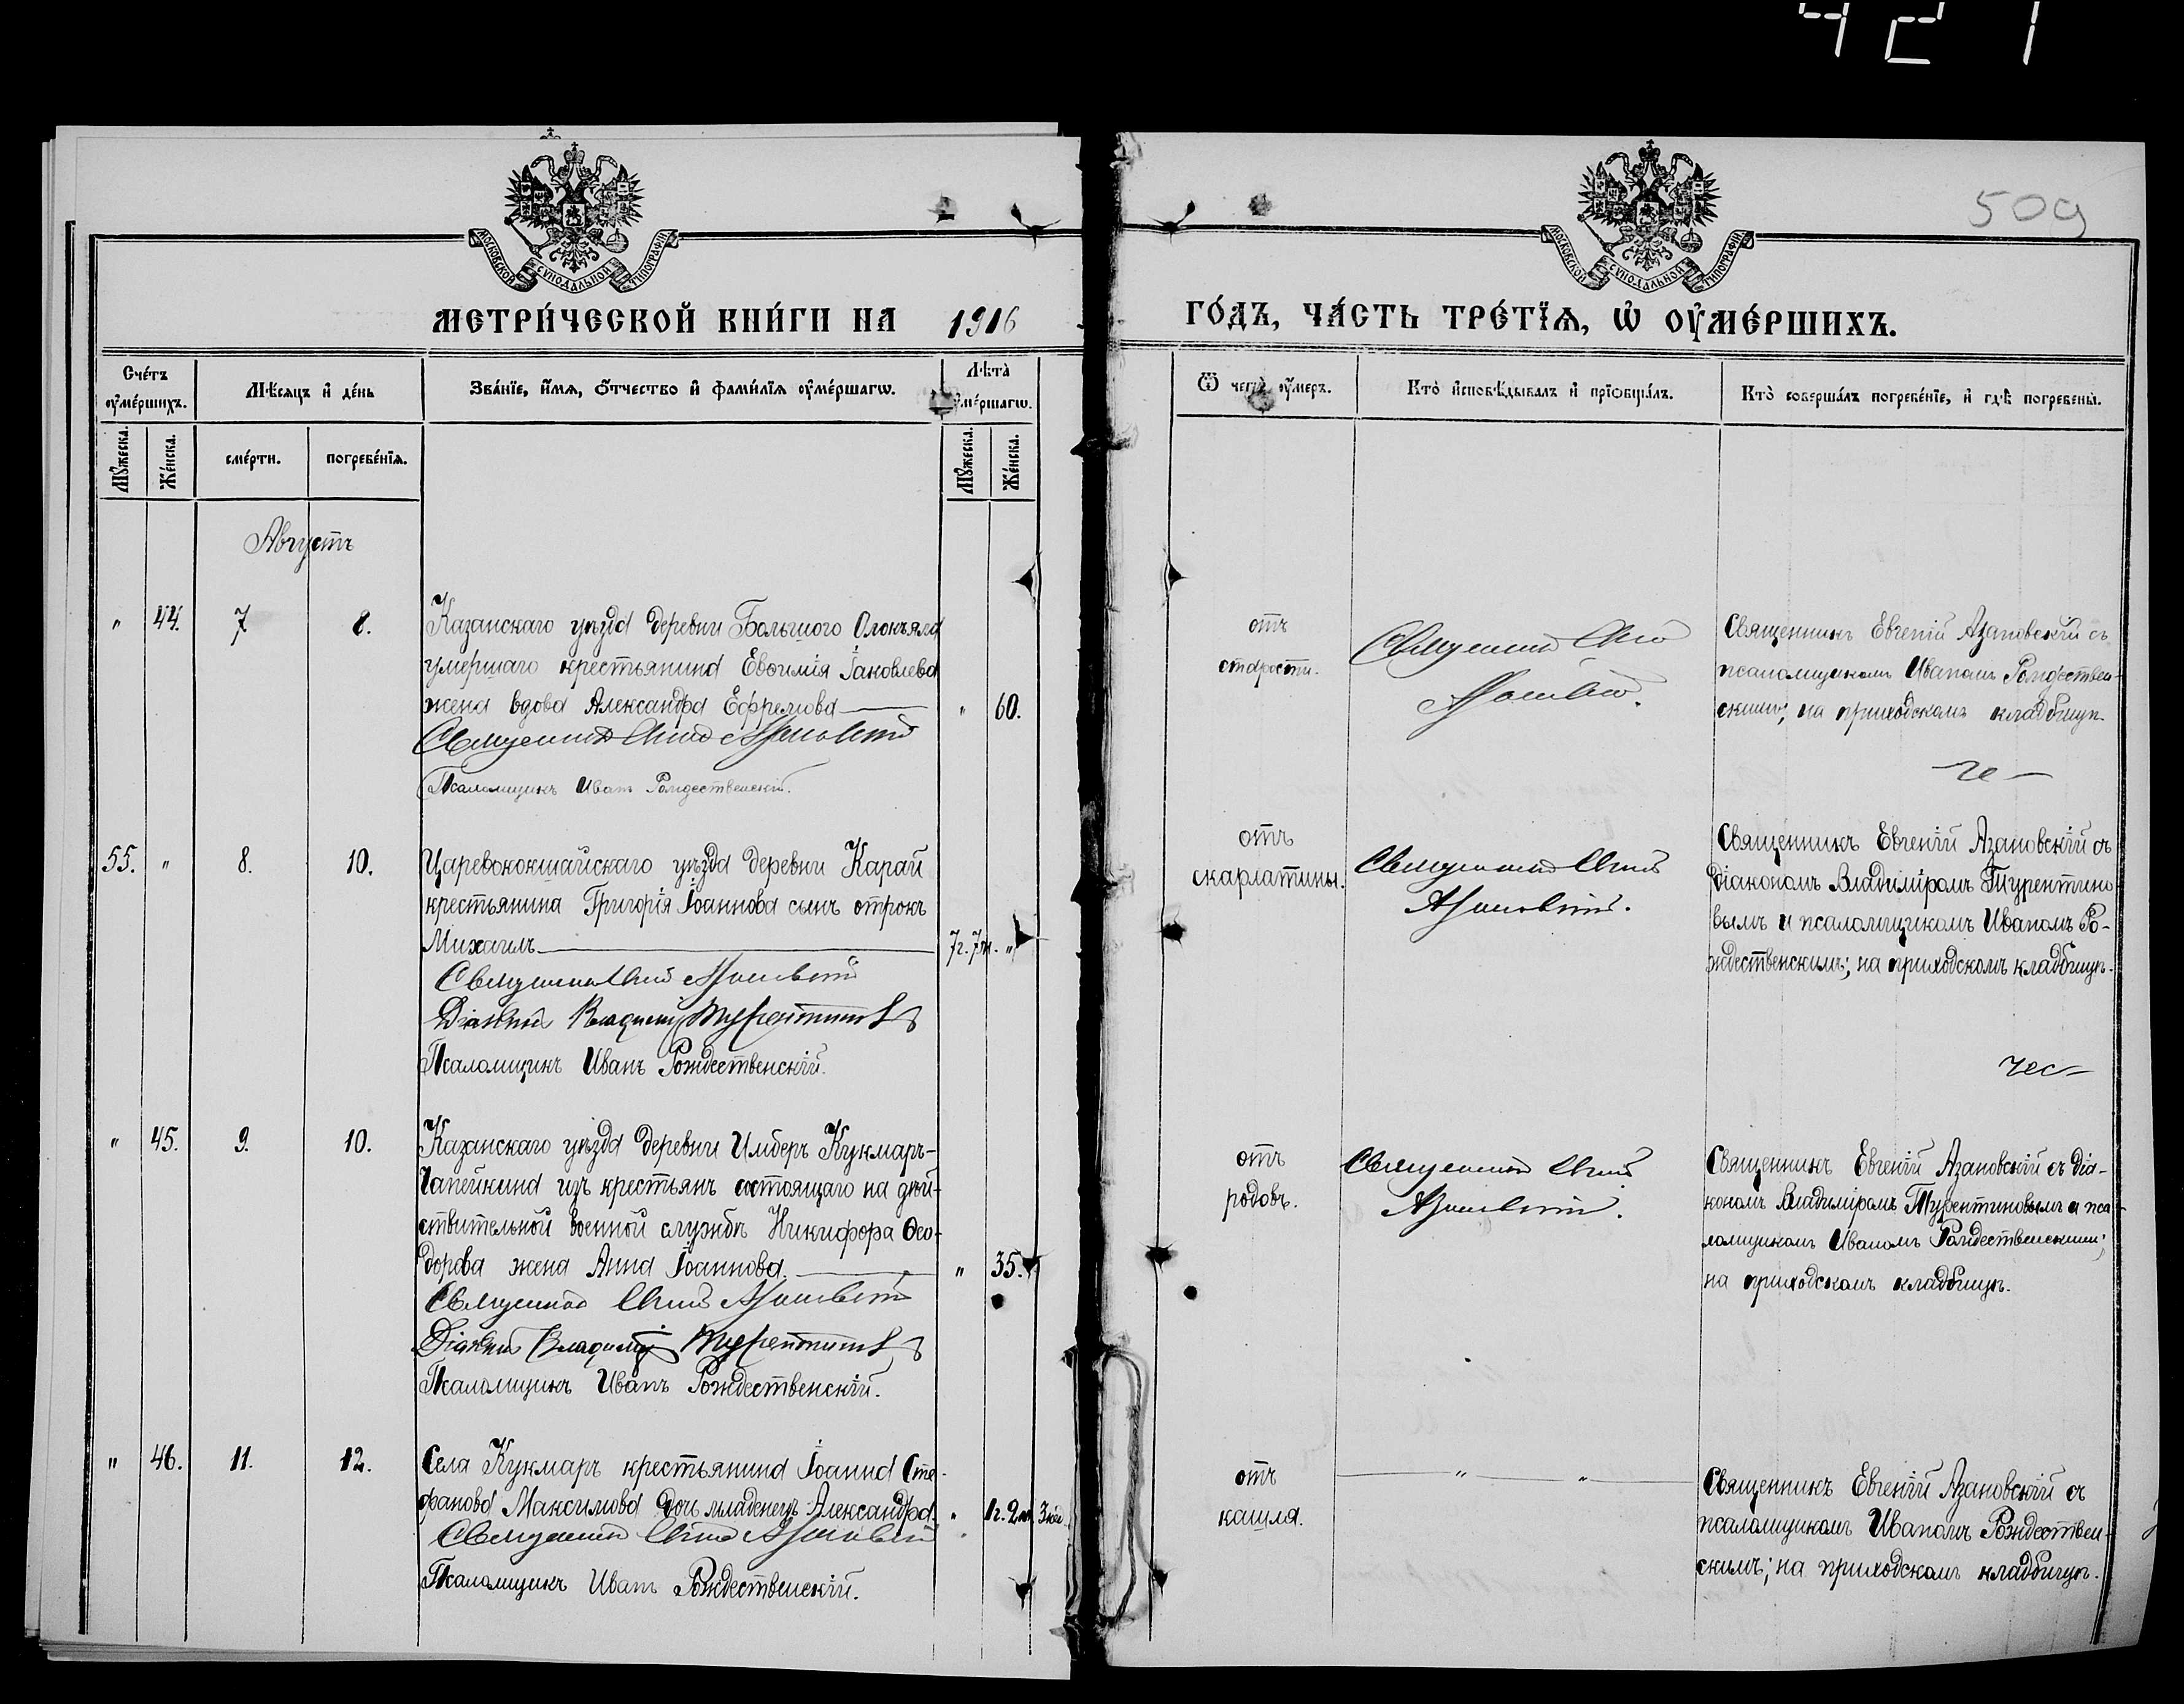 421
509
МОСКОВСКОЙ СѴНОДАЛЬНОЙ ТИПОГРАФІИ
МОСКОВСКОЙ СѴНОДАЛЬНОЙ ТИПОГРАФІИ
МЕТРИ́ЧЕСКОЙ КНИ́ГИ НА 1916
ГО́ДЪ, ЧА́СТЬ ТРЕ́ТЇѦ, Ѡ҆ ОУ҆МЕ́РШИХЪ.
Сче́тъ оу҆ме́ршихъ.
Мѣ́сѧцъ и҆ де́нь
Зва́нїе, и҆́мѧ, ѻ҆́тчество и҆ фами́лїѧ оу҆ме́ршагѡ.
Лѣта̀ оу҆ме́ршагѡ.
Ѿ чегѡ̀ оу҆́меръ.
Кто̀ и҆сповѣ́дывалъ и҆ прїѡбща́лъ.
Кто̀ соверша́лъ погребе́нїе, и҆ гдѣ̀ погребены̀.
Мꙋ́жеска.
Же́нска.
сме́рти.
погребе́нїѧ.
Мꙋ́жеска.
Же́нска.
Августъ
" 44. 7 8.
Казанскаго уѣзда деревни Большого Олокъяла
умершаго крестьянина Евѳимія Іаковлева
жена вдова Александра Ефремова
" 60.
Священникъ Азановскій
Псаломщикъ Иванъ Рождественскій.
отъ
старости.
Священникъ
Азановскій.
Священникъ Евгеній Азановскій съ
псаломщикомъ Иваномъ Рождествен-
скимъ; на приходскомъ кладбищѣ.
55. " 8. 10.
Царевококшайскаго уѣзда деревни Карай
крестьянина Григорія Іоаннова сынъ отрокъ
Михаилъ
7г. 7м. "
Священникъ Азановскій
Діаконъ Владиміръ Турентиновъ
Псаломщикъ Иванъ Рождественскій.
отъ
скарлатины.
Священникъ
Азановскій.
Священникъ Евгеній Азановскій съ
діакономъ Владиміромъ Турентино-
вымъ и псаломщикомъ Иваномъ Ро-
ждественскимъ; на приходскомъ кладбищѣ.
" 45. 9. 10.
Казанскаго уѣзда деревни Имберъ Кукмаръ-
Чапейкина изъ крестьянъ состоящаго на дѣй-
ствительной военной службѣ Никифора Ѳео-
дорова жена Анна Іоаннова.
" 35.
Священникъ Азановскій
Діаконъ Владиміръ Турентиновъ
Псаломщикъ Иванъ Рождественскій.
отъ
родовъ.
Священникъ
Азановскій.
Священникъ Евгеній Азановскій съ діа-
кономъ Владиміромъ Турентиновымъ и пса-
ломщикомъ Иваномъ Рождественскимъ;
на приходскомъ кладбищѣ.
" 46. 11. 12.
Села Кукмаръ крестьянина Іоанна Сте-
фанова Максимова дочь младенецъ Александра.
" 1г. 2м. 3нед.
Священникъ Азановскій
Псаломщикъ Иванъ Рождественскій.
отъ
кашля.
" "
Священникъ Евгеній Азановскій съ
псаломщикомъ Иваномъ Рождествен-
скимъ; на приходскомъ кладбищѣ.